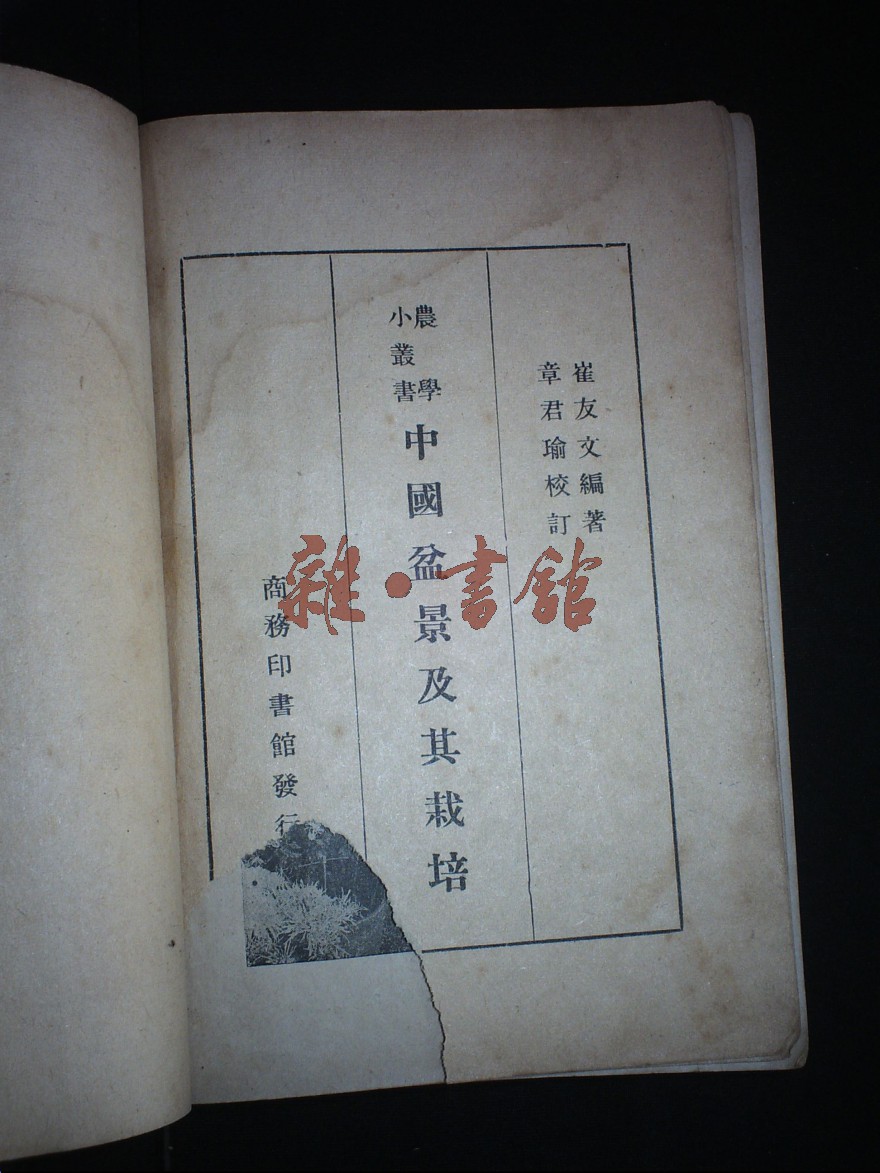 崔友文編著
章君瑜校訂
農學
小叢書
中國盆景及其栽培
商務印書館發行
雜·書館